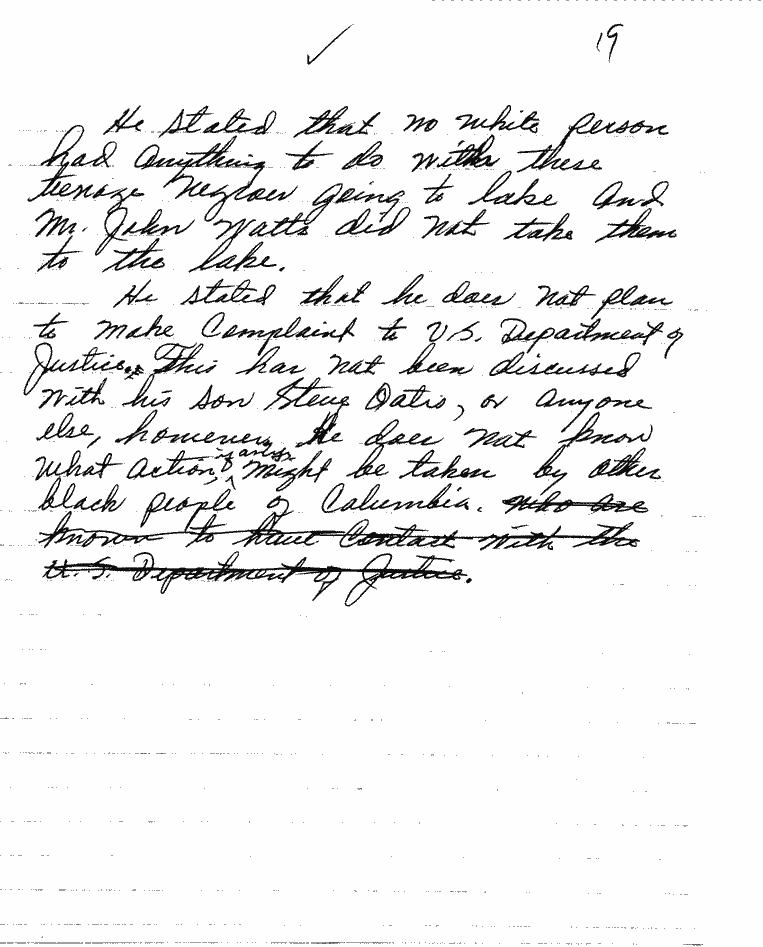 19
He stated that no white person
had anything to do with these
teenage Negroes going to lake and
Mr. John Watts did not take them
to the lake.
He stated that he does not plan
to make Complaint to U.S. Department of
Justice. This has not been discussed
with his son Steve Oatis, or anyone
else, however, he does not know
what action, if any, might be taken by other
black people of Columbia. who are
known to have Contact with the
U.S. Department of Justice.